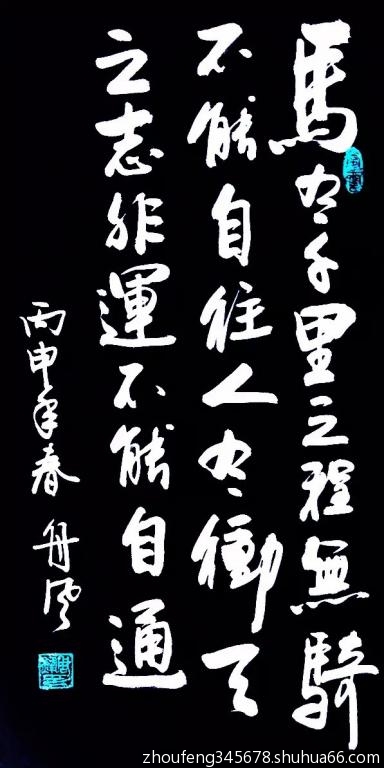 馬有千里之程無騎
不能自往人有衝天
之志非運不能自通
丙申年春 舟风
zhoufeng345678.shuhua66.com